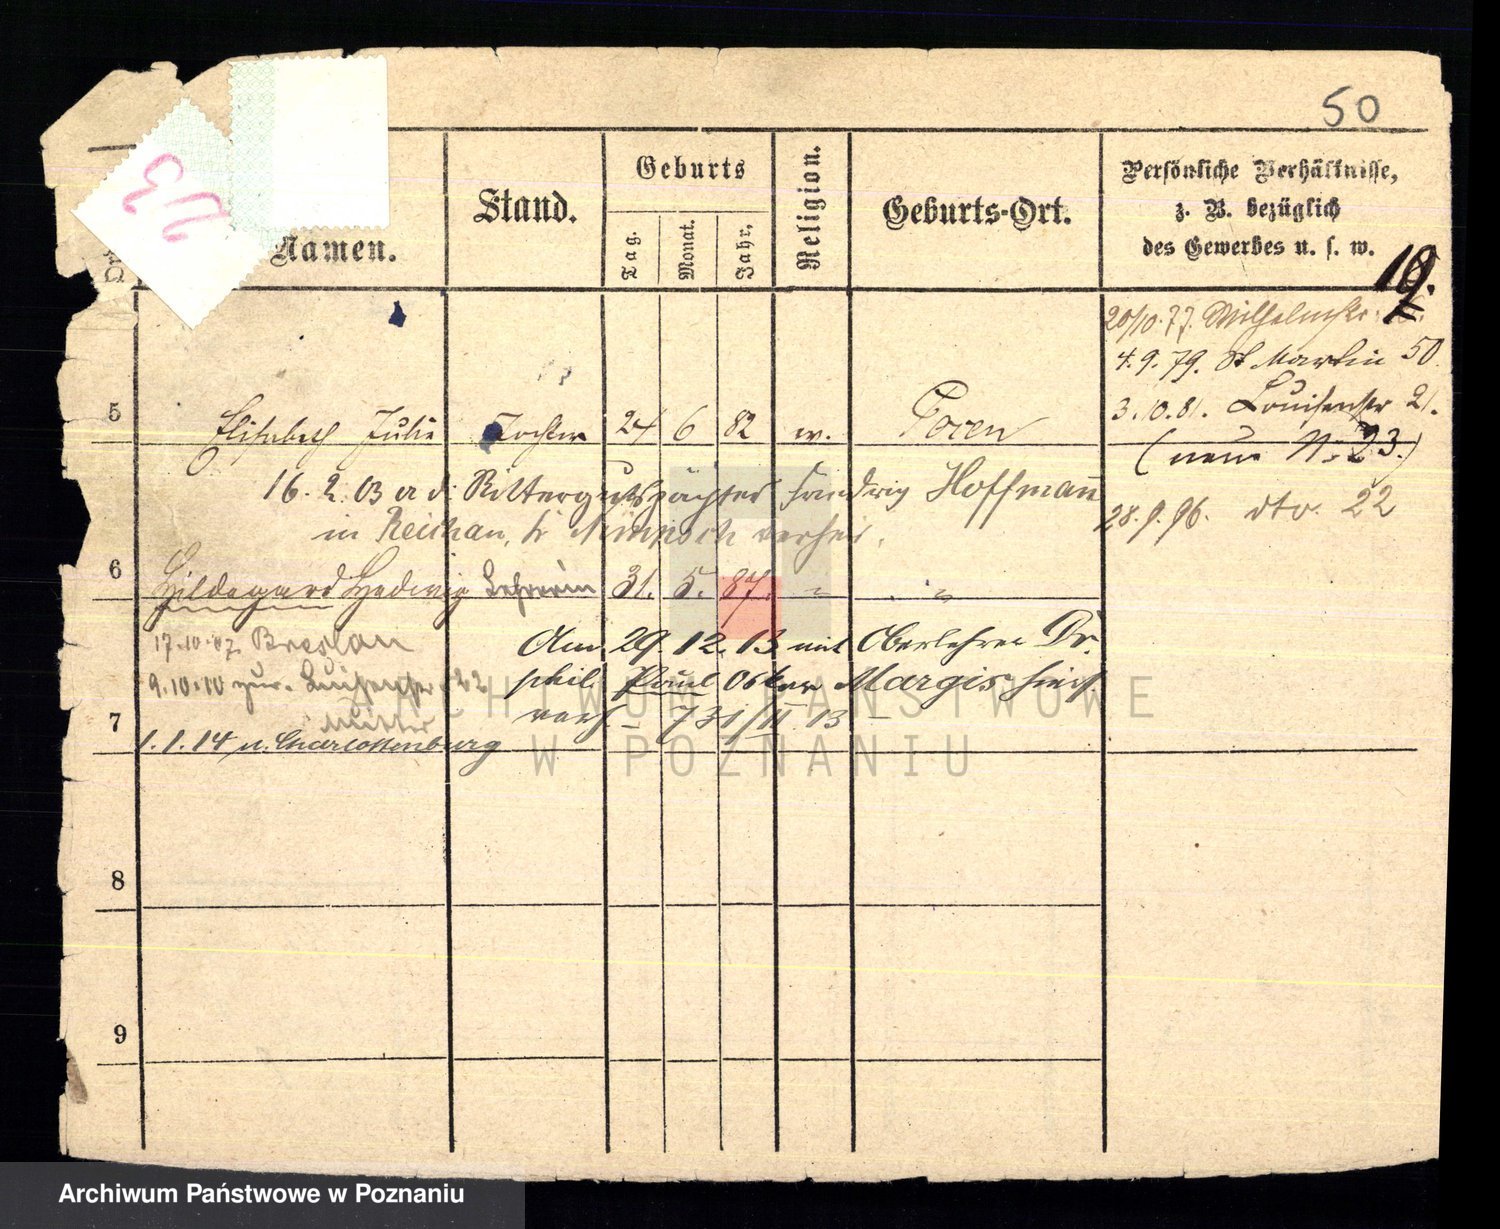 50
Namen.
Stand.
Geburts
Tag.
Monat.
Jahr.
Religion.
Geburts-Ort.
Persönliche Verhältnisse,
z. B. bezüglich
des Gewerbes u. s. w.
19.
20/10.77. Wilhelmstr.
4.9.79. St Martin 50
3.10.81. Louisenstr 21.
(neue No 23.)
28.9.96. dto. 22
5 Elisabeth Julie Tochter 24 6 82 ev. Posen
16.2.03 a d. Rittergutspächter Hoffmann
in
6 Hildegard Hedwig Lehrerin 31. 5. 87. " "
17.10.07. Breslau
9.10.10 zur. Luisenstr 22
Mutter
1.1.14 n. Charlottenburg
Am 29.12.13 mit Oberlehrer Dr.
phil. Paul Oskar Margis hier
verh. – 731/II 13 –
7
8
9
ARCHIWUM PAŃSTWOWE
W POZNANIU
Archiwum Państwowe w Poznaniu